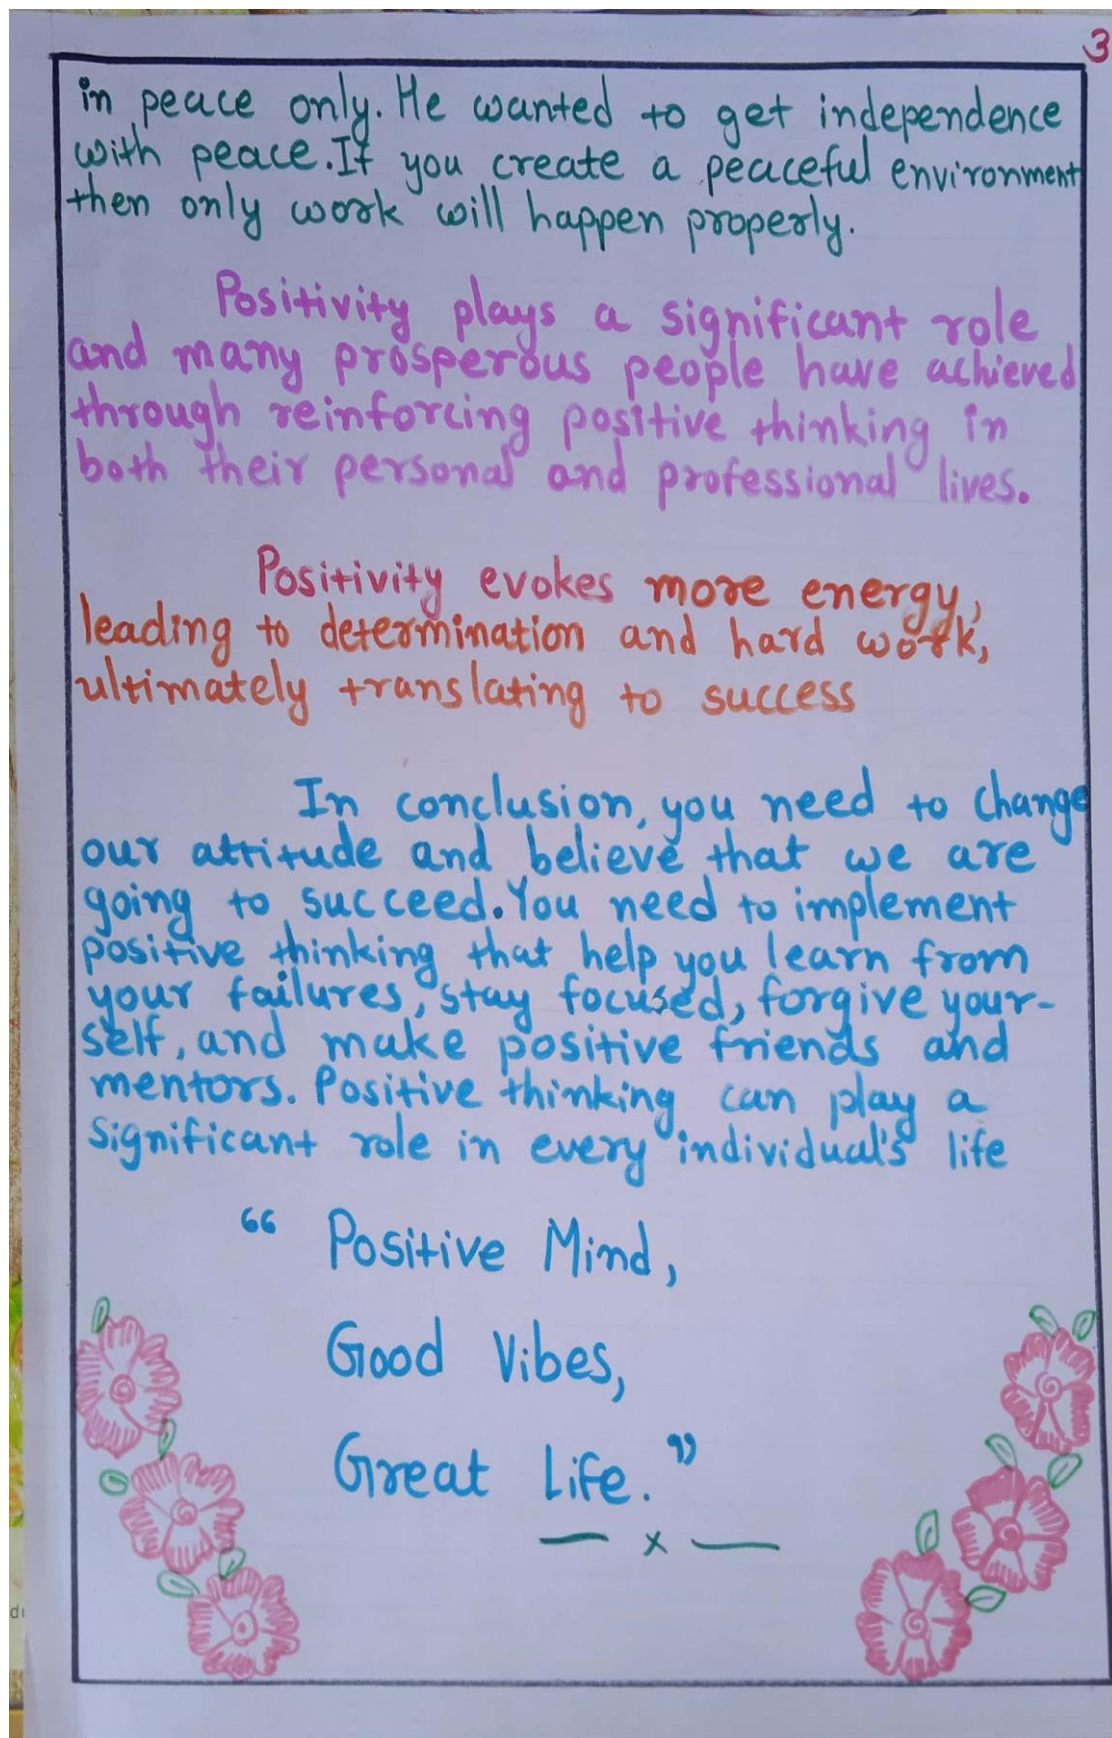 3
in peace only. He wanted to get independence
with peace. If you create a peaceful environment
then only work will happen properly.
Positivity plays a significant role
and many prosperous people have achieved
through reinforcing positive thinking in
both their personal and professional lives.
Positivity evokes more energy,
leading to determination and hard work,
ultimately translating to success
In conclusion, you need to change
our attitude and believe that we are
going to succeed. You need to implement
positive thinking that help you learn from
your failures, stay focused, forgive your-
self, and make positive friends and
mentors. Positive thinking can play a
significant role in every individual's life
“ Positive Mind,
Good Vibes,
Great Life. ”
— x —